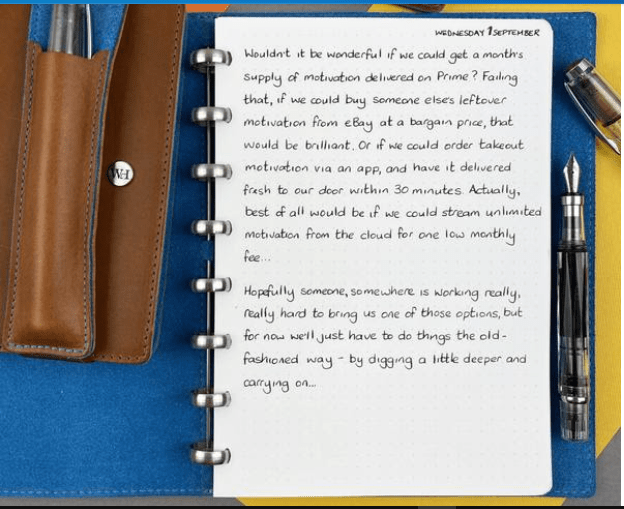 WEDNESDAY 1 SEPTEMBER
Wouldn't it be wonderful if we could get a month's
supply of motivation delivered on Prime? Failing
that, if we could buy someone else's leftover
motivation from eBay at a bargain price, that
would be brilliant. Or if we could order takeout
motivation via an app, and have it delivered
fresh to our door within 30 minutes. Actually,
best of all would be if we could stream unlimited
motivation from the cloud for one low monthly
fee...
Hopefully someone, somewhere is working really,
really hard to bring us one of those options, but
for now we'll just have to do things the old-
fashioned way - by digging a little deeper and
carrying on...